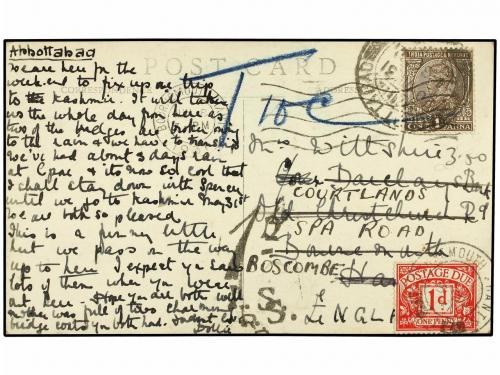 Abbottabad
We are here for the
weekend to fix up our trip
to Kashmir. It will take
us the whole day from here as
two of the bridges are broken owing
to the rain & we have to tranship
We've had about 3 days rain
at Cpae & it's now so cool that
I shall stay down with Spencer
until we go to Kashmir May 31st
We are both so pleased.
This is a funny little
but we pass on the way
up to here I expect you saw
lots of them when you were
out here. Hope you are both well
mother was full of two charming
bridge with you both had.
Dollie
POST CARD
T 10 C
INDIA POSTAGE & REVENUE
1 ANNA
Mrs Wiltshire
3.50
c/o Barclays Bank
COURTLANDS
Old Christchurch Rd
SPA ROAD
Bournemouth
BOSCOMBE
Hants
S.S.
ENGLAND
POSTAGE DUE
1d
ONE PENNY